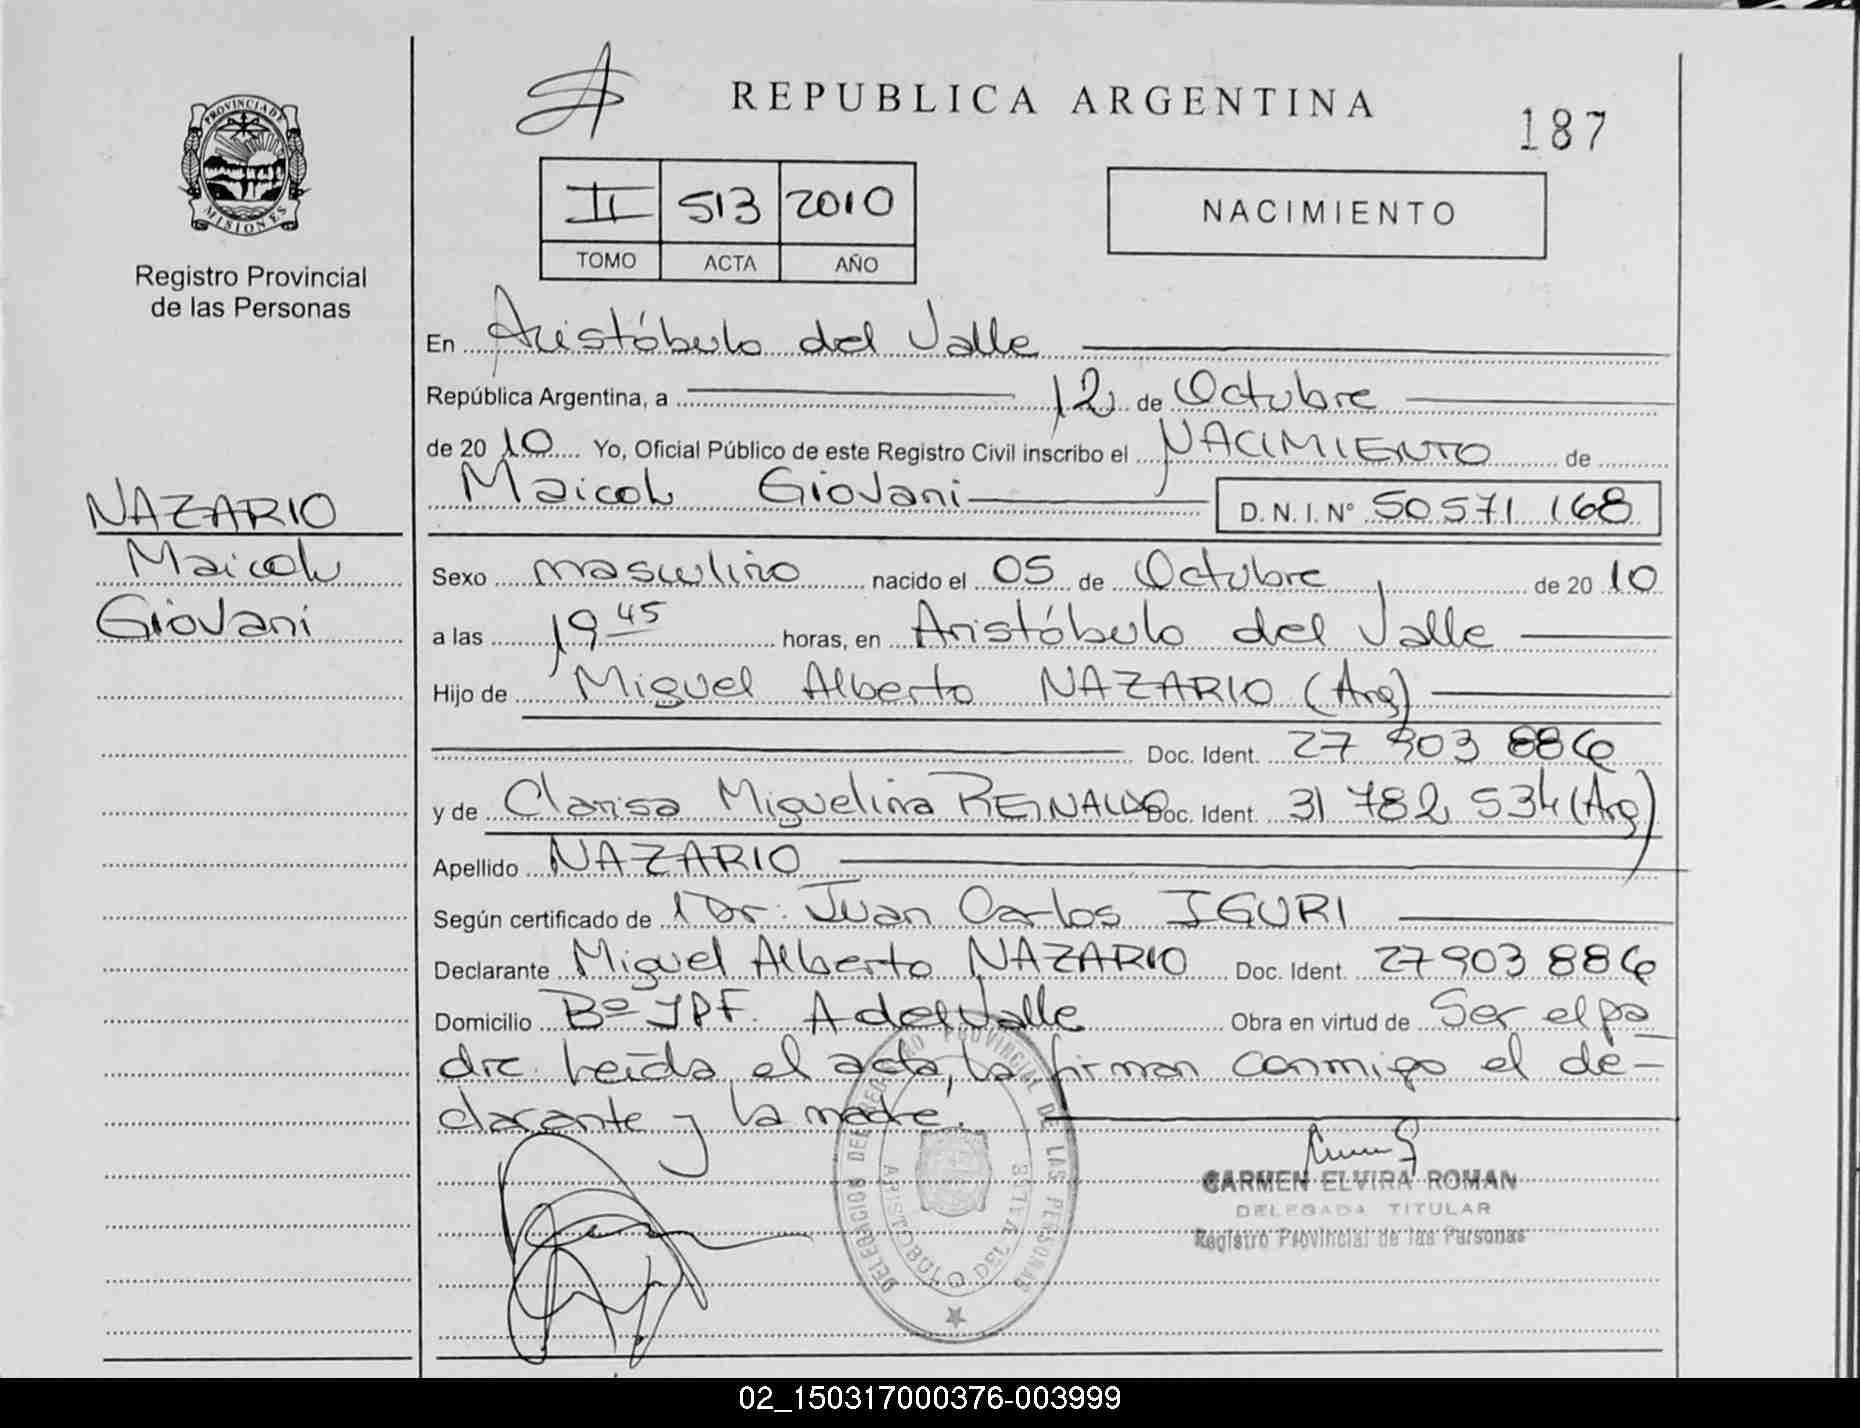 REPUBLICA ARGENTINA
187
PROVINCIA DE MISIONES
Registro Provincial
de las Personas
II 513 2010
TOMO ACTA AÑO
NACIMIENTO
En Aristóbulo del Valle
República Argentina, a 12 de Octubre
de 2010 Yo, Oficial Público de este Registro Civil inscribo el NACIMIENTO de
Maicoh Giovani D.N.I. Nº 50571168
NAZARIO
Maicoh
Giovani
Sexo masculino nacido el 05 de Octubre de 2010
a las 19 45 horas, en Aristóbulo del Valle
Hijo de Miguel Alberto NAZARIO (Arg)
Doc. Ident. 27 903 886
y de Clarisa Miguelina REINALDO Doc. Ident. 31 782 534 (Arg)
Apellido NAZARIO
Según certificado de Dr: Juan Carlos IGURI
Declarante Miguel Alberto NAZARIO Doc. Ident. 27903 886
Domicilio Bº YPF. A del Valle Obra en virtud de Ser el pa
dre. Leída el acta, la firman conmigo el de-
clarante y la madre.
DELEGACION DEL REGISTRO PROVINCIAL DE LAS PERSONAS
ARISTOBULO DEL VALLE
CARMEN ELVIRA ROMAN
DELEGADA TITULAR
Registro Provincial de las Personas
02_150317000376-003999